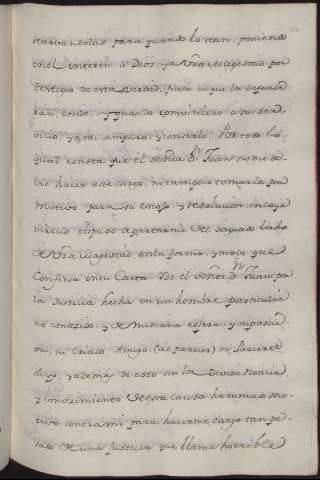 servandolas para quando lo sean; poniendo
en el interin à Dios, y a Vra Magestad por
testigos de esta verdad, fiado en que la defende
rán, donde, y quando combiniere a su ser
vicio, y a mi amparo, y consuelo. Por todo lo
qual consta que el señor Dn Juan no me de
vio hacer este cargo, ni tampoco tomarle por
motivo para su enojo, y resolucion en cuya
virtud dispuso apartarme del sagrado lado
de Vra Magestad en la forma, y modo que
confiesa en su Carta. Por el señor Dn Juan pa
la Justicia hecha en un hombre particular
no conozido, y de mediana esfera, y suposici
on, ni Criado, Amigo, (al parecer) ni Pariente
suyo, y ademas de esto sin la devida noticia
y conocimiento de esta causa ha tomado mo
tivo contra mi para hacerme cargo tan pe
sado de una Justicia que llama horrible